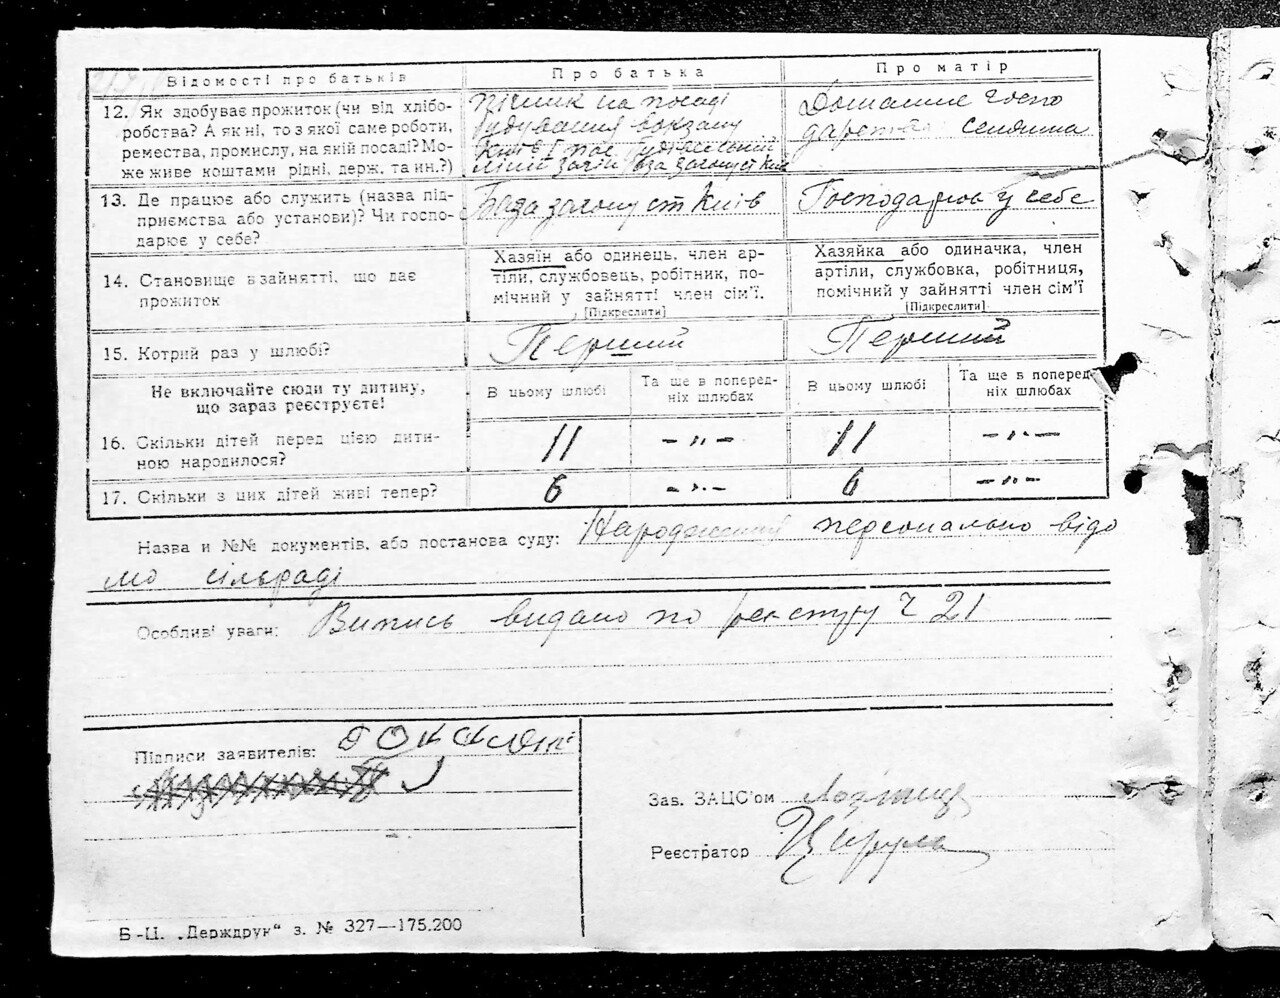 Відомості про батьків
Про батька
Про матір
12. Як здобуває прожиток (чи від хлібо-
робства? А як ні, то з якої саме роботи,
ремества, промислу, на якій посаді? Мо-
же живе коштами рідні, держ. та ин.?)
пічник на посаді
будування вокзалу
Київ
Домашнє госпо
дарство селянка
13. Де працює або служить (назва під-
приємства або установи)? Чи госпо-
дарює у себе?
База загону ст Київ
Господарює у себе
14. Становище в зайнятті, що дає
прожиток
Хазяїн або одинець, член ар-
тіли, службовець, робітник, по-
мічний у зайнятті член сім'ї.
[Підкреслити]
Хазяйка або одиначка, член
артіли, службовка, робітниця,
помічний у зайнятті член сім'ї
[Підкреслити]
15. Котрий раз у шлюбі?
Перший
Перший
Не включайте сюди ту дитину,
що зараз реєструєте!
В цьому шлюбі
Та ще в поперед-
ніх шлюбах
В цьому шлюбі
Та ще в поперед-
ніх шлюбах
16. Скільки дітей перед цією дити-
ною народилося?
11
– „ –
11
– „ –
17. Скільки з цих дітей живі тепер?
6
– „ –
6
– „ –
Назва и №№ документів, або постанова суду: Народження персонально відо
мо сільраді
Особливі уваги: Випись видано по реєстру Ч 21
Підписи заявителів:
Зав. ЗАЦС'ом
Реєстратор
Б-Ц. „Держдрук“ з. № 327—175.200